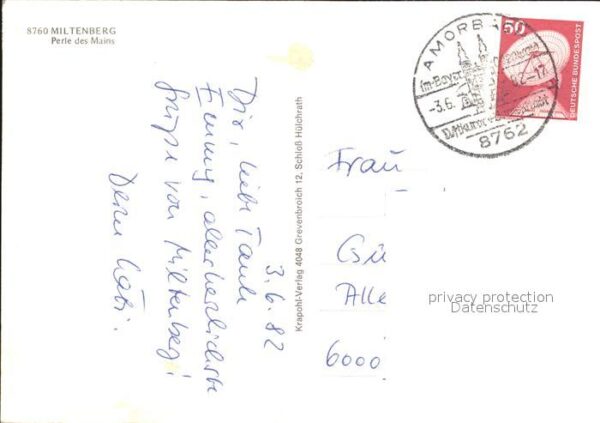 8760 MILTENBERG
Perle des Mains
3.6.82
Dir, liebe Tante
Emmy, allerherzlichste
Grüße von Miltenberg!
Deine
Krapohl-Verlag 4048 Grevenbroich 12, Schloß Hülchrath
AMORBACH
Im Bayer.
-3.6.
-17
Luftkurort
8762
50
DEUTSCHE BUNDESPOST
Frau
Gü
Alle
6000
privacy protection
Datenschutz